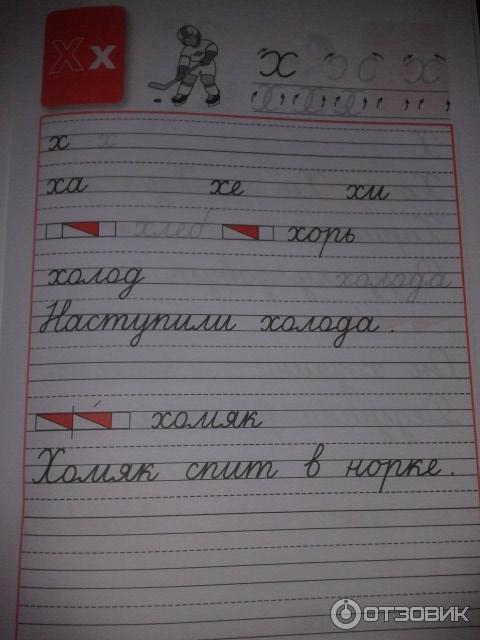 Хх Х
х х
ха хе хи
хлеб хорь
холод холода
Наступили холода.
хомяк
Хомяк спит в норке.
ОТЗОВИК